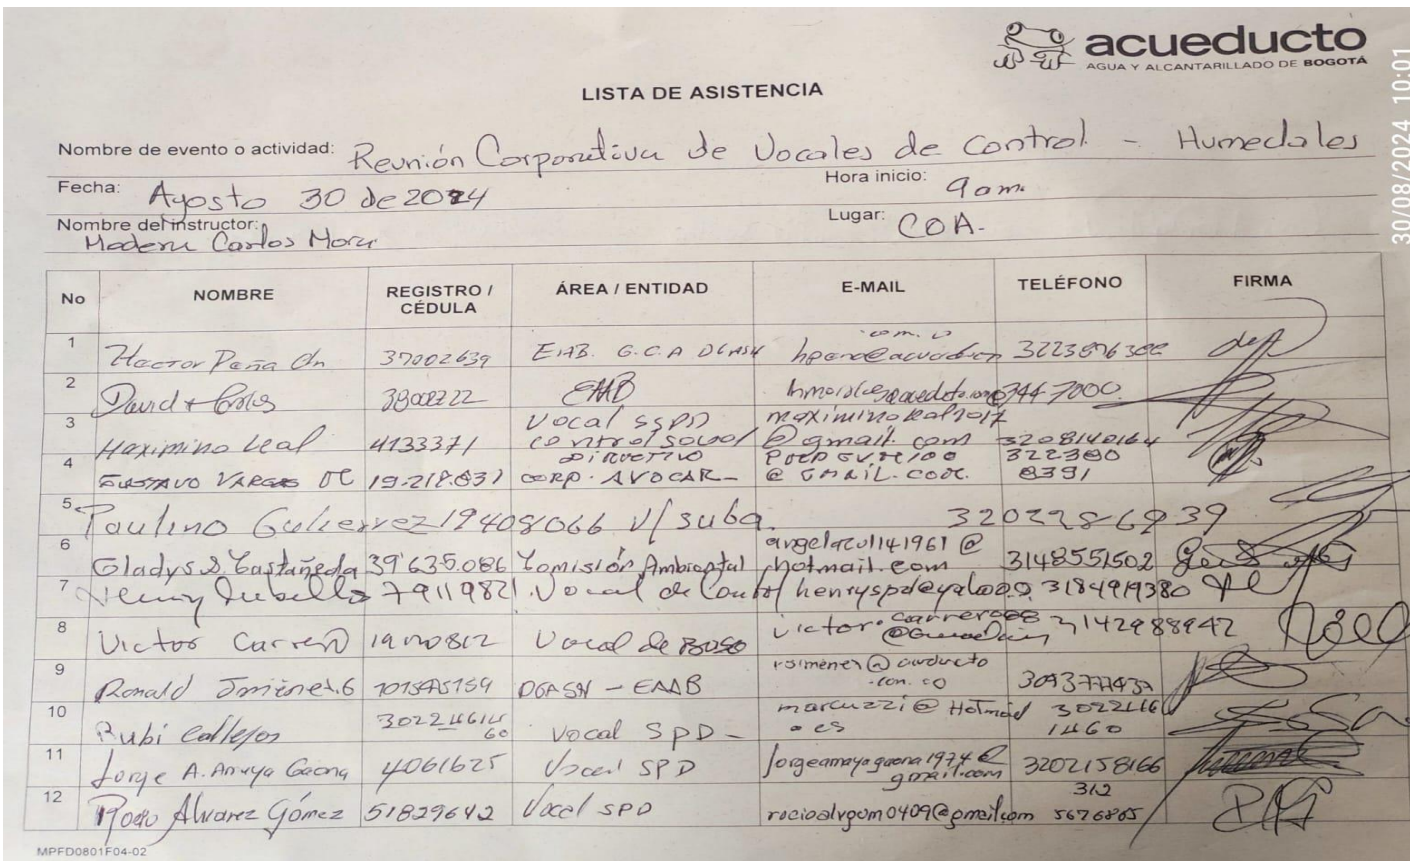 acueducto
AGUA Y ALCANTARILLADO DE BOGOTÁ
30/08/2024 10:01
LISTA DE ASISTENCIA
Nombre de evento o actividad: Reunión Corporativa de Vocales de Control - Humedales
Fecha: Agosto 30 de 2024
Hora inicio: 9 am.
Nombre del instructor: Carlos Mora
Lugar: COA.
No NOMBRE REGISTRO / CÉDULA ÁREA / ENTIDAD E-MAIL TELÉFONO FIRMA
1 Hector Peña 37002639 EAB. G.C.A
2 David 3808222 EAAB 3447000
3 Maximino Leal 4133371 Vocal SSPD control social maximinoleal2017@gmail.com 3208140164
4 GUSTAVO VARGAS DC 19.218.831 DIRECTIVO CORP. AVOCAR- 322380 8391
5 Paulino Gutierrez 19408066 V/ suba 3202286939
6 Gladys S. Castañeda 39'635.086 Comisión Ambiental angelazul141961@hotmail.com 3148551502
7 Henry 79119821 Vocal de Control 3184919380
8 Victor Carreño Vocal de Bosa 3142988942
9 Ronald Jimenez.G DGASH - EAAB
10 Rubi Callejas 3022461460 Vocal SPD - marcuzzi@Hotmail.es 3022461460
11 Jorge A. Amaya Gaona 4061625 Vocal SPD jorgeamayagaona1974@gmail.com 3202158166
12 Rocio Alvarez Gómez 51829642 Vocal SPD rocioalvgom0409@gmail.com 312 5676865
MPFD0801F04-02